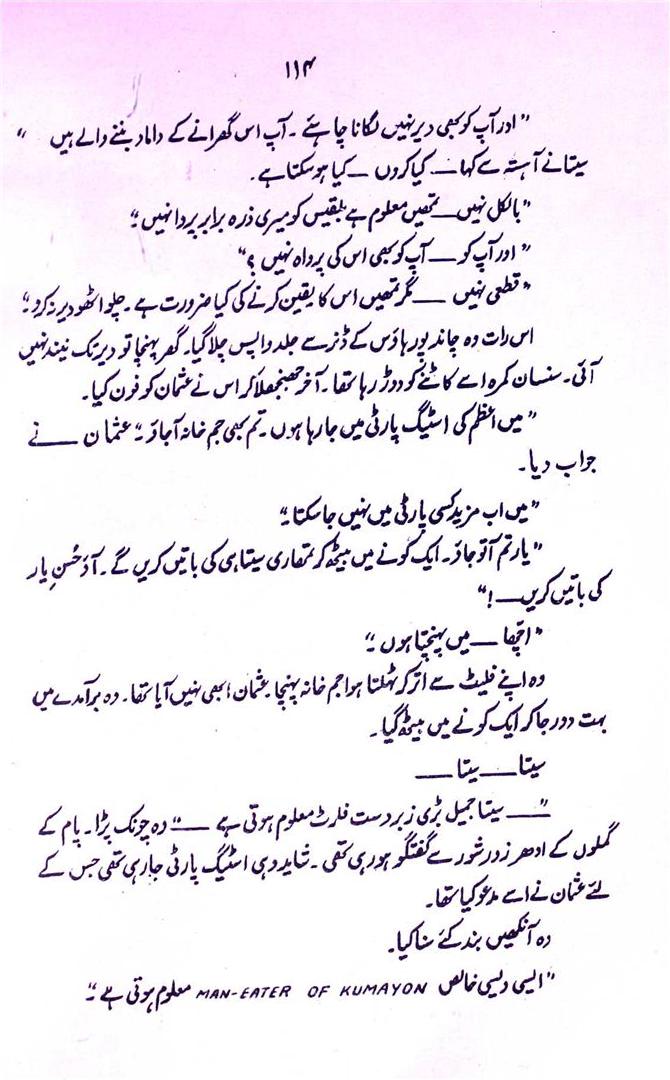 ۱۱۴
"اور آپ کو بھی دیر نہیں لگانا چاہئے۔ آپ اس گھرانے کے داماد بننے والے ہیں"
سیتا نے آہستہ سے کہا — کیا کروں — کیا ہو سکتا ہے۔
"بالکل نہیں — تمھیں معلوم ہے بلقیس کو میری ذرہ برابر پروا نہیں۔"
"اور آپ کو — آپ کو بھی اس کی پرواہ نہیں؟"
"قطعی نہیں — مگر تمھیں اس کا یقین کرنے کی کیا ضرورت ہے۔ چلو اٹھو دیر نہ کرو۔"
اس رات وہ چاند پور ہاؤس کے ڈنر سے جلد واپس چلا گیا۔ گھر پہنچا تو دیر تک نیند نہیں
آئی۔ سنسان کمرہ اسے کاٹنے کو دوڑ رہا تھا۔ آخر جھنجھلا کر اس نے عثمان کو فون کیا۔
"میں اعظم کی اسٹیگ پارٹی میں جا رہا ہوں۔ تم بھی جم خانہ آجاؤ۔" عثمان — نے
جواب دیا۔
"میں اب مزید کسی پارٹی میں نہیں جا سکتا۔"
"یار تم آ تو جاؤ۔ ایک کونے میں بیٹھ کر تمھاری سیتا ہی کی باتیں کریں گے۔ آؤ حُسنِ یار
کی باتیں کریں —!"
"اچھا — میں پہنچتا ہوں۔"
وہ اپنے فلیٹ سے اتر کر ٹہلتا ہوا جم خانہ پہنچا۔ عثمان ابھی نہیں آیا تھا۔ وہ برآمدے میں
بہت دور جا کر ایک کونے میں بیٹھ گیا۔
سیتا — سیتا —
"— سیتا جمیل بڑی زبردست فلرٹ معلوم ہوتی ہے —" وہ چونک پڑا۔ پام کے
گملوں کے ادھر زور شور سے گفتگو ہو رہی تھی۔ شاید وہی اسٹیگ پارٹی جاری تھی جس کے
لئے عثمان نے اسے مدعو کیا تھا۔
وہ آنکھیں بند کئے سنا کیا۔
"ایسی ویسی خالص MAN-EATER OF KUMAYON معلوم ہوتی ہے۔"